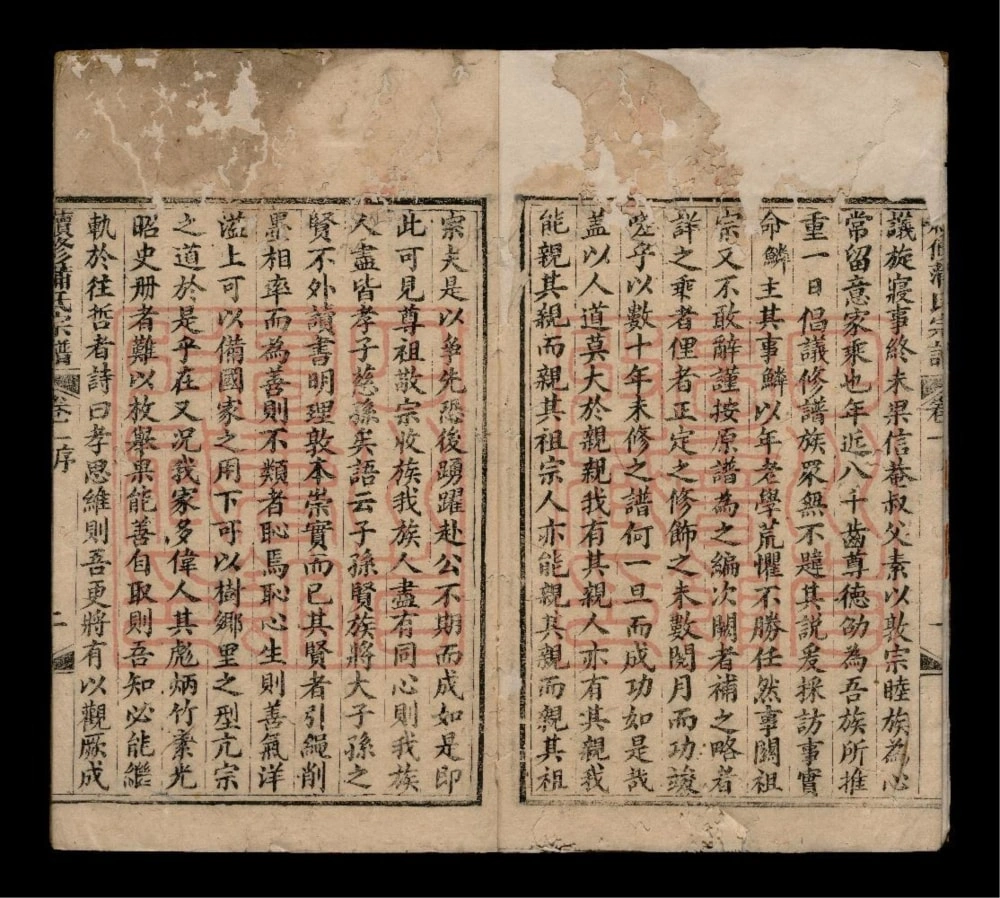 續修蒲氏宗譜 卷一 一
議旋寢事終未果信菴叔父素以敦宗睦族為心
常留意家乘也年近八千齒尊德劭為吾族所推
重一日倡議修譜族眾無不韙其說爰採訪事實
命鱗主其事鱗以年老學荒懼不勝任然事關祖
宗又不敢辭謹按原譜為之編次闕者補之略者
詳之乘者俚者正定之修飾之未數閱月而功竣
嗟乎以數十年未修之譜何一旦而成功如是哉
盖以人道莫大於親親我有其親人亦有其親我
能親其親而親其祖宗人亦能親其親而親其祖
宗夫是以爭先恐後踴躍赴公不期而成如是即
此可見尊祖敬宗收族我族人盡有同心則我族
人盡皆孝子慈孫矣語云子孫賢族將大子孫之
賢不外讀書明理敦本崇實而已其賢者引繩削
墨相率而為善則不類者恥焉恥心生則善氣洋
溢上可以備國家之用下可以樹鄉里之型亢宗
之道於是乎在又况我家多偉人其彪炳竹素光
昭史册者難以枚舉果能善自取則吾知必能繼
軌於往哲者詩曰孝思維則吾更將有以觀厥成
續修蒲氏宗譜 卷一序 二